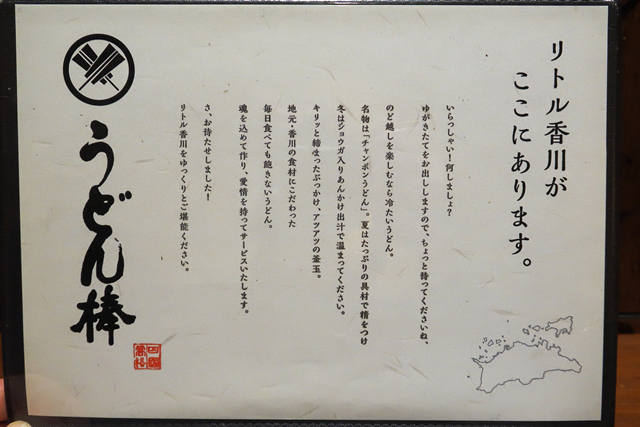 リトル香川が
ここにあります。
いらっしゃい！何しましょ？
ゆがきたてをお出ししますので、ちょっと待ってくださいね、
のど越しを楽しむなら冷たいうどん。
名物は「チャンポンうどん」。夏はたっぷりの具材で精をつけ
冬はショウガ入りあんかけ出汁で温まってください。
キリッと締まったぶっかけ、アツアツの釜玉。
地元・香川の食材にこだわった
毎日食べても飽きないうどん。
魂を込めて作り、愛情を持ってサービスいたします。
さ、お待たせしました！
リトル香川をゆっくりとご堪能ください。
うどん棒